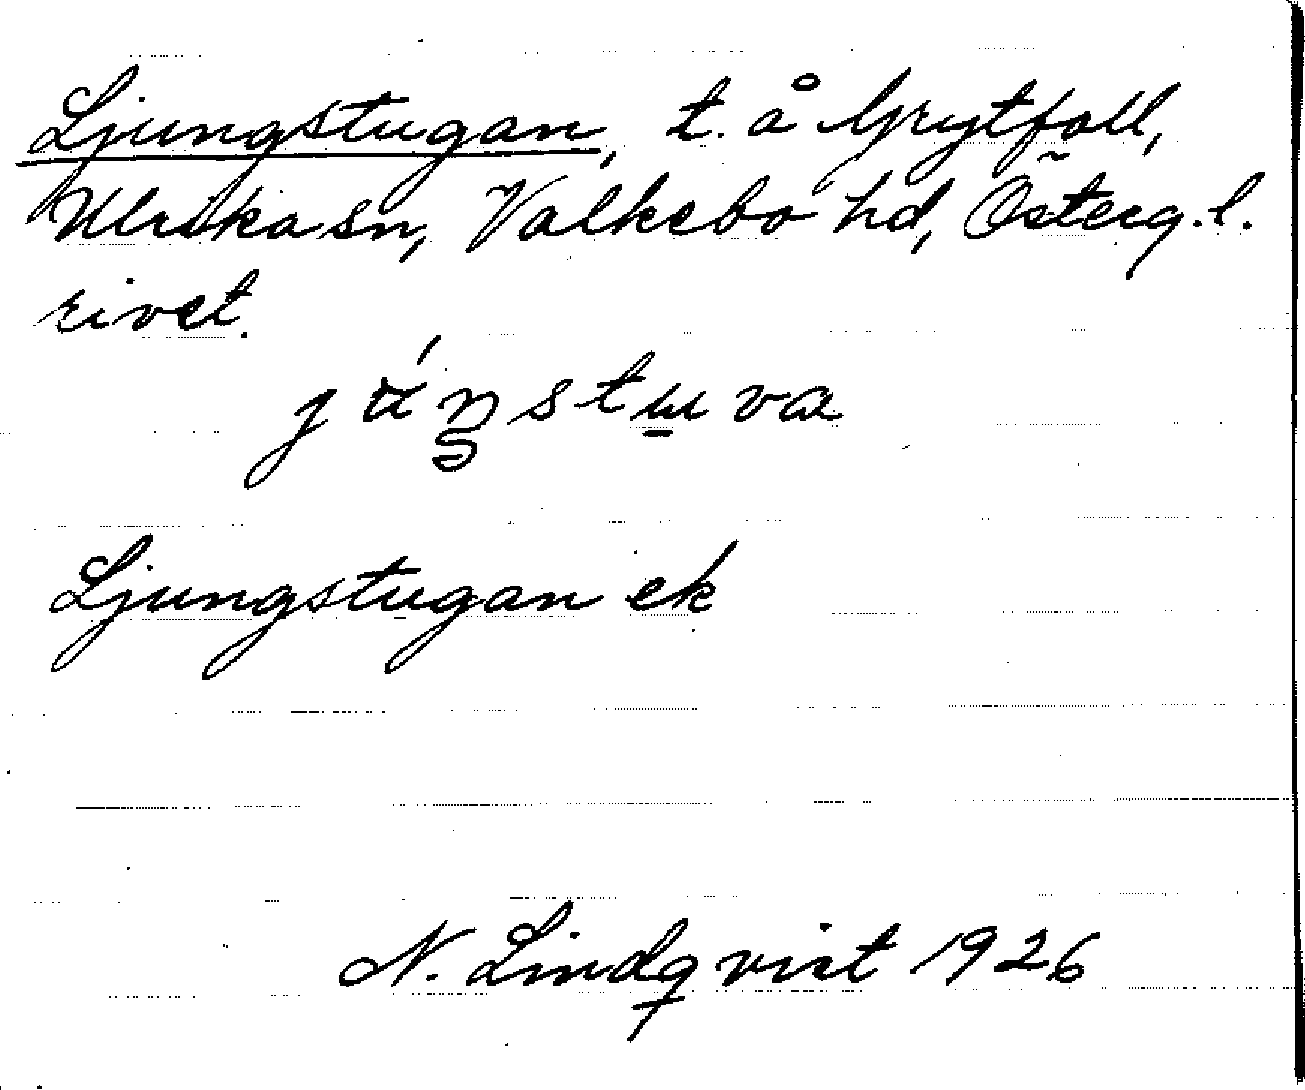 Ljungstugan, t. å Grytfall,
Ulrika sn, Valkebo hd, Österg.l.
rivet.
Ljungstugan ek
N. Lindqvist 1926